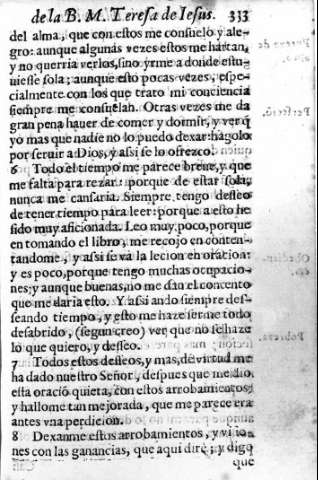 de la B. M. Teresa de Iesus. 333
del alma, que con estos me consuelo y ale-
gro: aunque algunas vezes estos me hartan,
y no querria verlos, sino yrme a donde estu-
uiesse sola; aunque esto pocas vezes, espe-
cialmente con los que trato mi conciencia
siempre me consuelan. Otras vezes me da
gran pena hauer de comer y dormir, y ver q̃
yo mas que nadie no lo puedo dexar: hagolo
por seruir a Dios, y assi se lo ofrezco.
6 Todo el tiempo me parece breue, y que
me falta para rezar: porque de estar sola,
nunca me cansaria. Siempre tengo desseo
de tener tiempo para leer: porque a esto he
sido muy aficionada. Leo muy poco, porque
en tomando el libro, me recojo en conten-
tandome, y assi se va la lecion en oracion:
y es poco, porque tengo muchas ocupacio-
nes; y aunque buenas, no me dan el contento
que me daria esto. Y assi ando siempre des-
seando tiempo, y esto me haze ser me todo
desabrido, (segun creo) ver que no se haze
lo que quiero, y desseo.
7 Todos estos desseos, y mas, de virtud me
ha dado nuestro Señor, despues que me dio
esta oració quieta, con estos arrobamientos,
y hallome tan mejorada, que me parece era
antes vna perdicion.
8 Dexanme estos arrobamientos, y visio-
nes con las ganancias, que aqui dirè; y digo
que